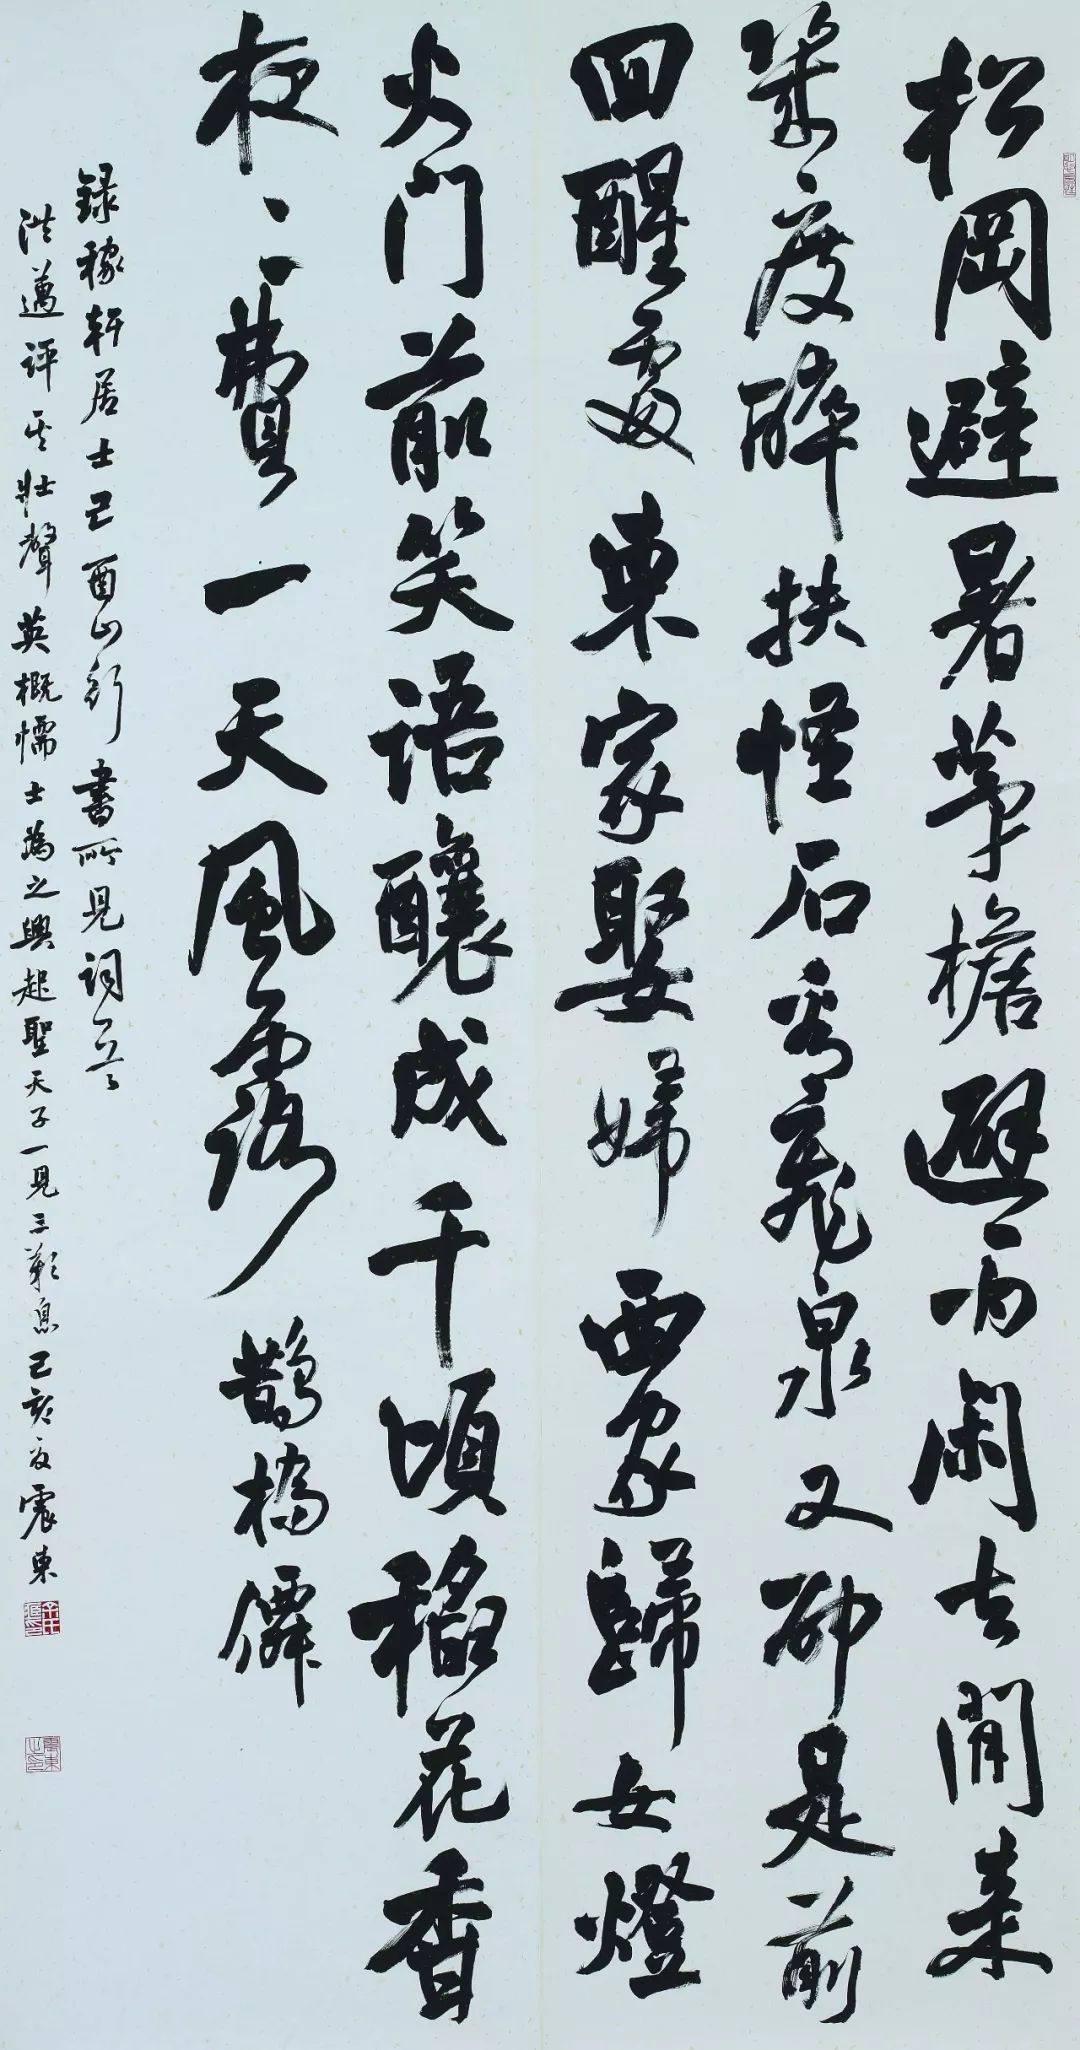 松岡避暑茅檐避雨閑去閒來
幾度醉扶怪石看飛泉又卻是前
回醒處東家娶婦西家歸女燈
火門前笑語釀成千頃稻花香
夜〻費一天風露鵲橋僊
錄稼軒居士己酉山行書所見詞一首
洪邁評其壯聲英概懦士為之興起聖天子一見三歎息己亥夏震東